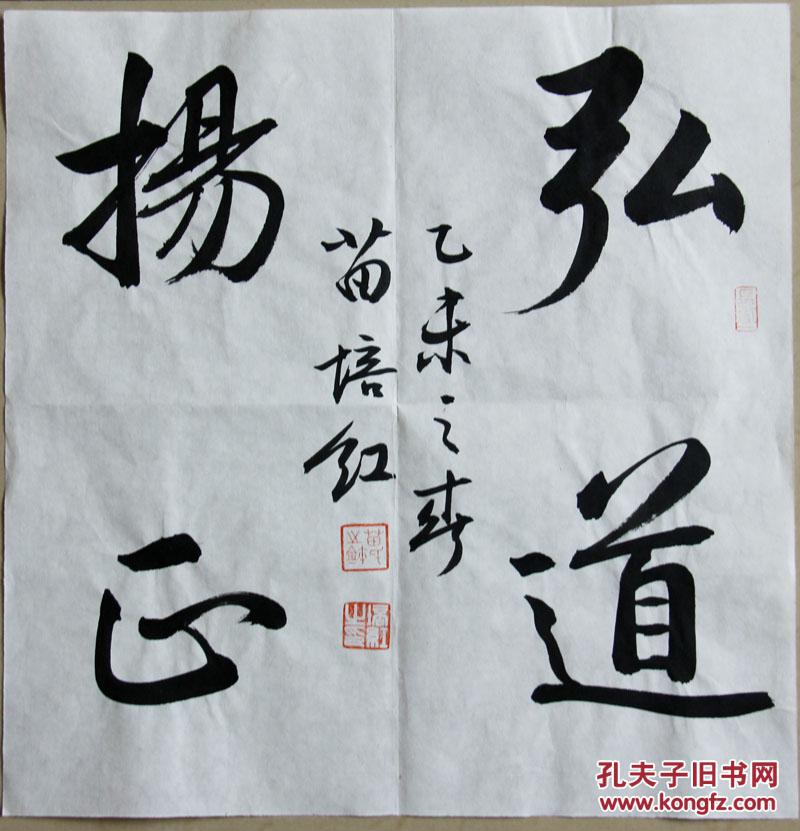 弘道
揚正
乙未之春
苗培红
孔夫子旧书网
www.kongfz.com